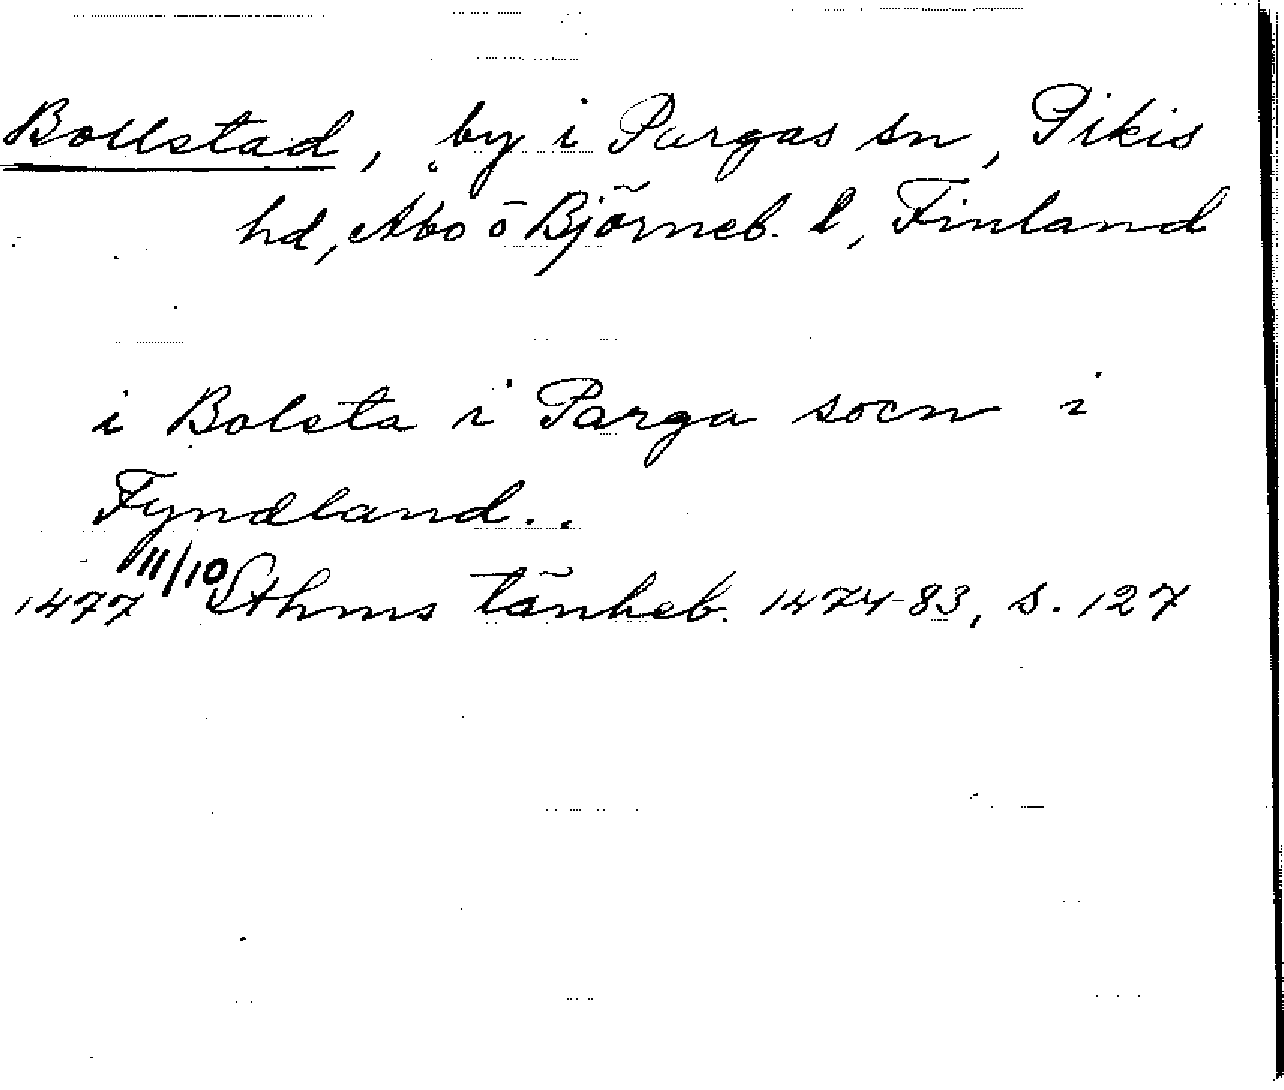 Bollstad, by i Pargas sn, Pikis
hd, Åbo o Björneb. l, Finland
i Bolsta i Parga socn i
Fyndland..
1477 11/10 Sthms tänkeb. 1474-83, s. 127